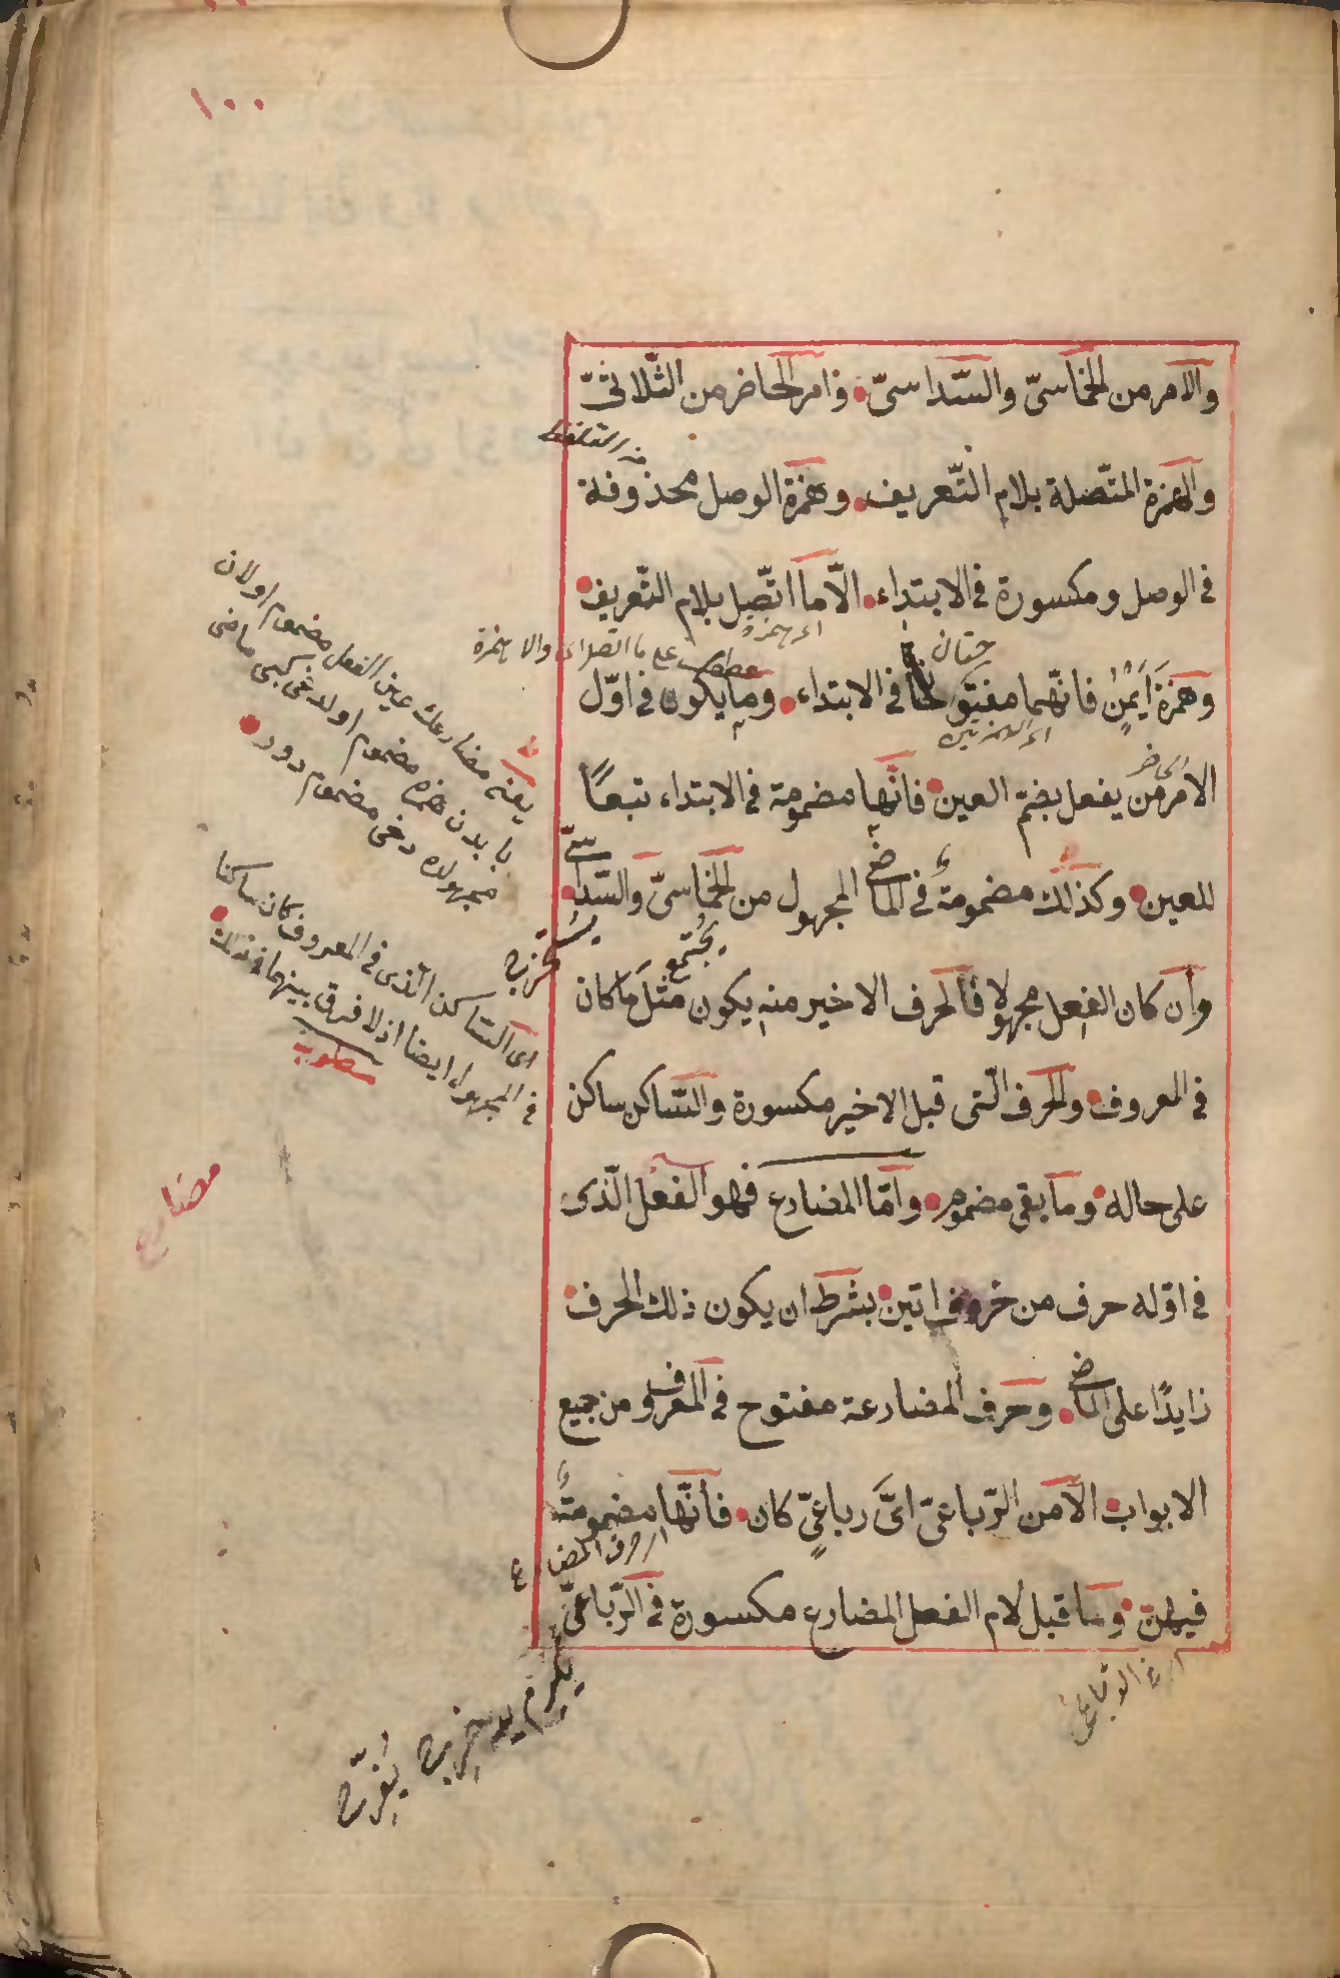 ١٠٠
والامر من الخماسىّ والسّداسىّ • وامر الحاضر من الثّلاثىّ
من التلفظ
والهمزة المتّصلة بلام التّعريف • وهمزة الوصل محذوفة
فى الوصل ومكسورة فى الابتداء • الّا ما اتّصل بلام التّعريف •
اى همزة
عطف على ما اتصل اى والا همزة
وهمزة اَيْمُنٍ فانّهما مفتوحتان فى الابتداء • وما يكون فى اوّل
اى الهمزتين
الحاضر
الامر من يفعل بضمّ العين • فانّها مضمومة فى الابتداء تبعًا
للعين • وكذلك مضمومةٌ فى الماضى المجهول من الخماسىّ والسّداسىّ •
يجتمع
يستخرج
وان كان الفعل مجهولا فالحرف الاخير منه يكون مثل ما كان
فى المعروف • والحرف الّتى قبل الاخير مكسورة والسّاكن ساكن
على حاله • وما بقى مضموم • وامّا المضارع فهو الفعل الّذى
فى اوّله حرف من حروف اتين • بشرط ان يكون ذلك الحرف •
زايدًا على الماضى • وحرف المضارعة مفتوح فى المعروف من جميع
الابواب • الّا من الرّباعىّ اىّ رباعىٍّ كان • فانّها مضمومةٌ
اى حرف المضارع
فيهنّ • وما قبل لام الفعل المضارع مكسورة فى الرّباعىّ
اى فى الرباعى
يكرم يدحرج يفرّح
يعنى مضارعك عين الفعل مضموم اولان
بابدن همزه مضموم اولدغى كبى ماضى
مجهولده دخى مضموم در •
اى الساكن الّذى فى المعروف كان ساكنا
فى المجهول ايضا اذ لا فرق بينهما فى ذلك •
مطلوب
مضارع